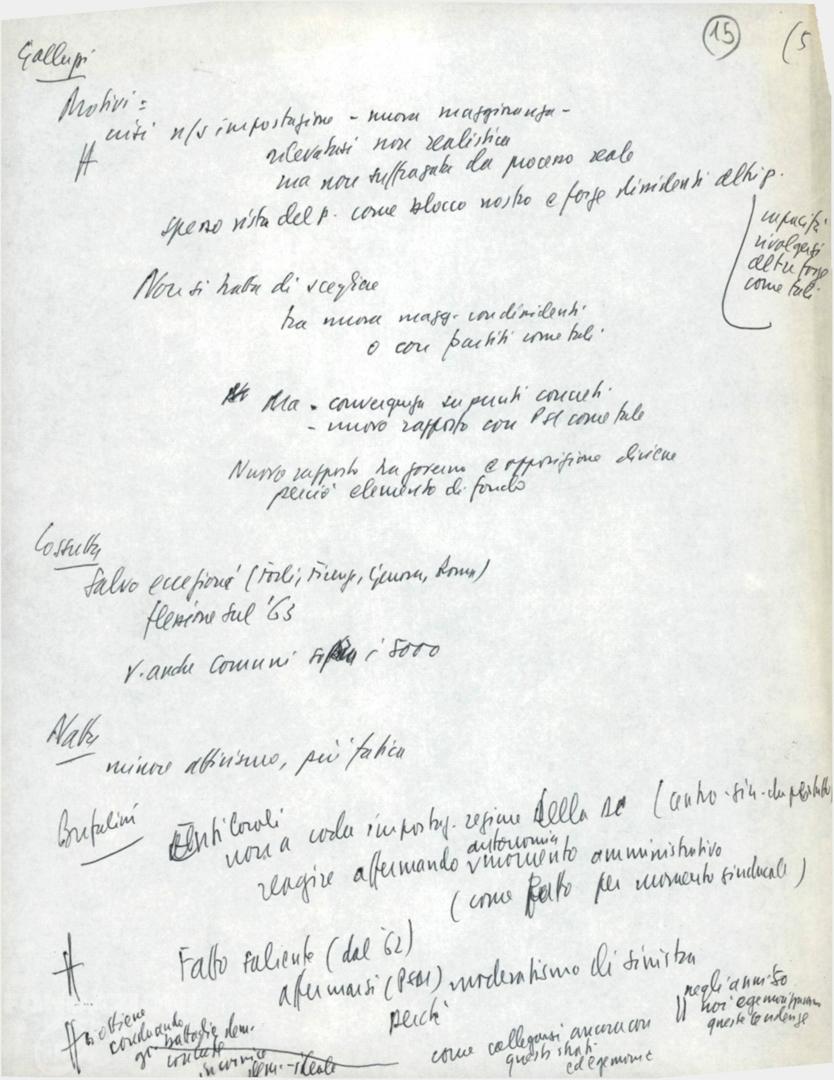 15
(5
Gallupi
Motivi =
crisi n/s impostazione - nuova maggioranza -
rilevatasi non realistica
ma non suffragata da processo reale
spesso vista del p. come blocco nostro e forze dissidenti altri p.
incapacità
rivolgersi
altre forze
come tali
Non si tratta di scegliere
tra nuova magg. con dissidenti
o con partiti come tali
Ma - convergenza su punti concreti
- nuovo rapporto con PSI come tale
Nuovo rapporto tra governo e opposizione diviene
perciò elemento di fondo
Cossutta
salvo eccezioni (Forlì, Firenze, Genova, Roma)
flessione sul '63
v. anche comuni sopra i 5000
Natta
minore attivismo, più fatica
Bufalini
Enti locali
non a coda impostaz. regime della DC (centro-sin.
reagire affermando autonomia momento amministrativo
(come fatto per momento sindacale)
Fatto saliente (dal '62)
affermarsi (PSDI) moderatismo di sinistra
perché
negli anni '50
noi egemonizzavamo
queste tendenze
come collegarsi ancora con
questi strati
ed egemonie
si ottiene
conducendo
battaglie dem.
condotte
in cornice
dem.-ideale